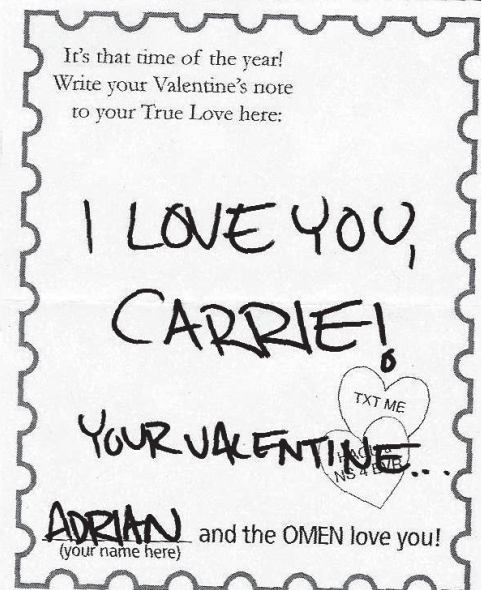 It's that time of the year!
Write your Valentine's note
to your True Love here:
I LOVE YOU,
CARRIE!
TXT ME
YOUR VALENTINE...
NS 4 EVR
ADRIAN and the OMEN love you!
(your name here)